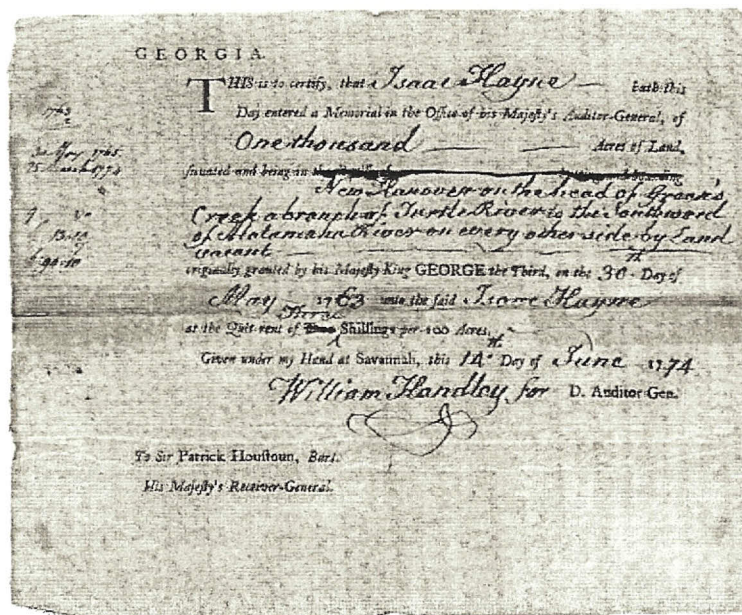 GEORGIA.
THIS is to certify, that Isaac Hayne — hath this
Day entered a Memorial in the Office of his Majesty's Auditor-General, of
One thousand — — Acres of Land,
situated and being in
New Hanover on the head of Green's
Creek a branch of Turtle River to the Southward
of Alatamaha River on every other side by Land
vacant
originally granted by his Majesty King GEORGE the Third, on the 30th Day of
May 1763 unto the said Isaac Hayne
at the Quit-rent of Three Shillings per 100 Acres.
Given under my Hand at Savannah, this 14th Day of June 1774
William Handley for D. Auditor-Gen.
To Sir Patrick Houstoun, Bart.
His Majesty's Receiver-General.
1763
May 1765
25 March 1774